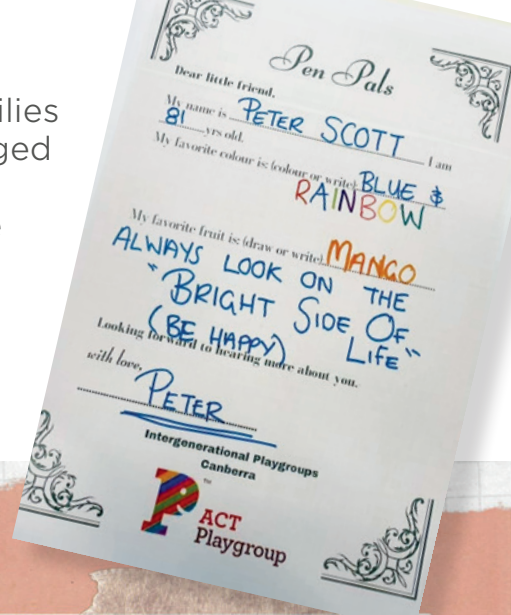 ilies
ged
Pen Pals
Dear little friend,
My name is PETER SCOTT I am
81 yrs old.
My favorite colour is: (colour or write) BLUE &
RAINBOW
My favorite fruit is: (draw or write) MANGO
ALWAYS LOOK ON THE
"BRIGHT SIDE OF
LIFE"
(BE HAPPY)
Looking forward to hearing more about you.
with love,
PETER
Intergenerational Playgroups
Canberra
TM
ACT
Playgroup